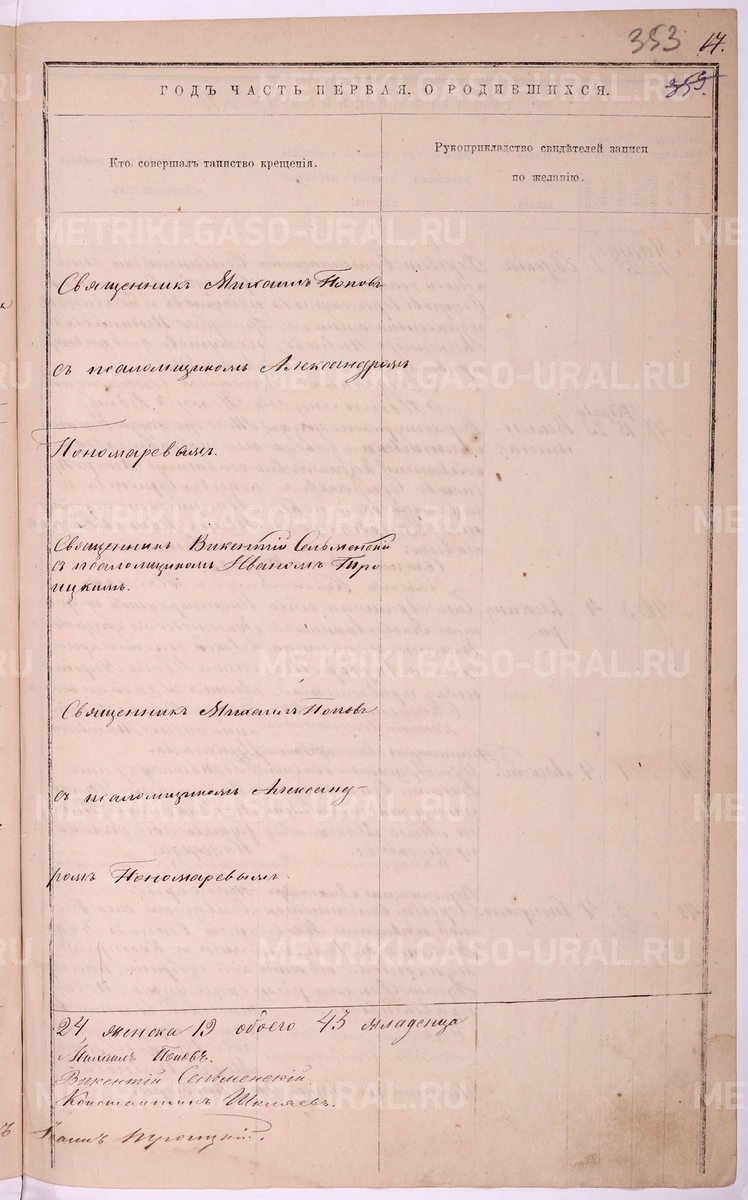 353 17.
359.
ГОДЪ ЧАСТЬ ПЕРВАЯ, О РОДИВШИХСЯ.
Кто совершалъ таинство крещенія.
Рукоприкладство свидѣтелей записи
по желанію.
METRIKI.GASO-URAL.RU
Священникъ Михаилъ Поповъ
съ псаломщикомъ Александромъ
Пономаревымъ.
Священникъ Викентій Сельменскій
съ псаломщикомъ Иваномъ Тро
ицкимъ.
Священникъ Михаилъ Поповъ
съ псаломщикомъ Александ-
ромъ Пономаревымъ.
24, женска 19 обоего 43 младенца
Михаилъ Поповъ.
Викентій Сельменскій.
Константинъ Шкляевъ.
Иванъ Троицкій.